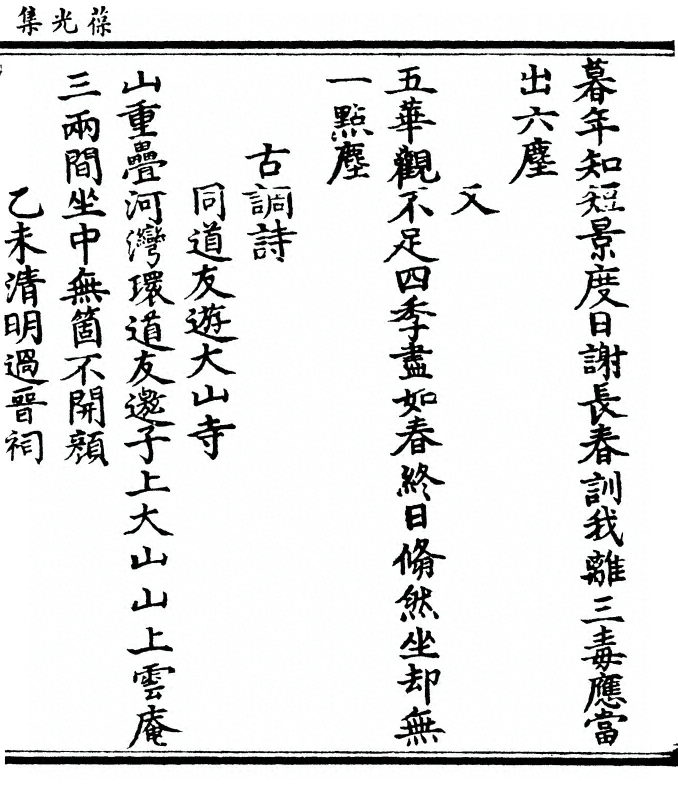 葆光集
暮年知短景度日謝長春訓我離三毒應當
出六塵
又
五華觀不足四季盡如春終日翛然坐却無
一點塵
古調詩
同道友遊大山寺
山重疊河灣環道友邀子上大山山上雲庵
三兩間坐中無箇不開顏
乙未清明過晉祠